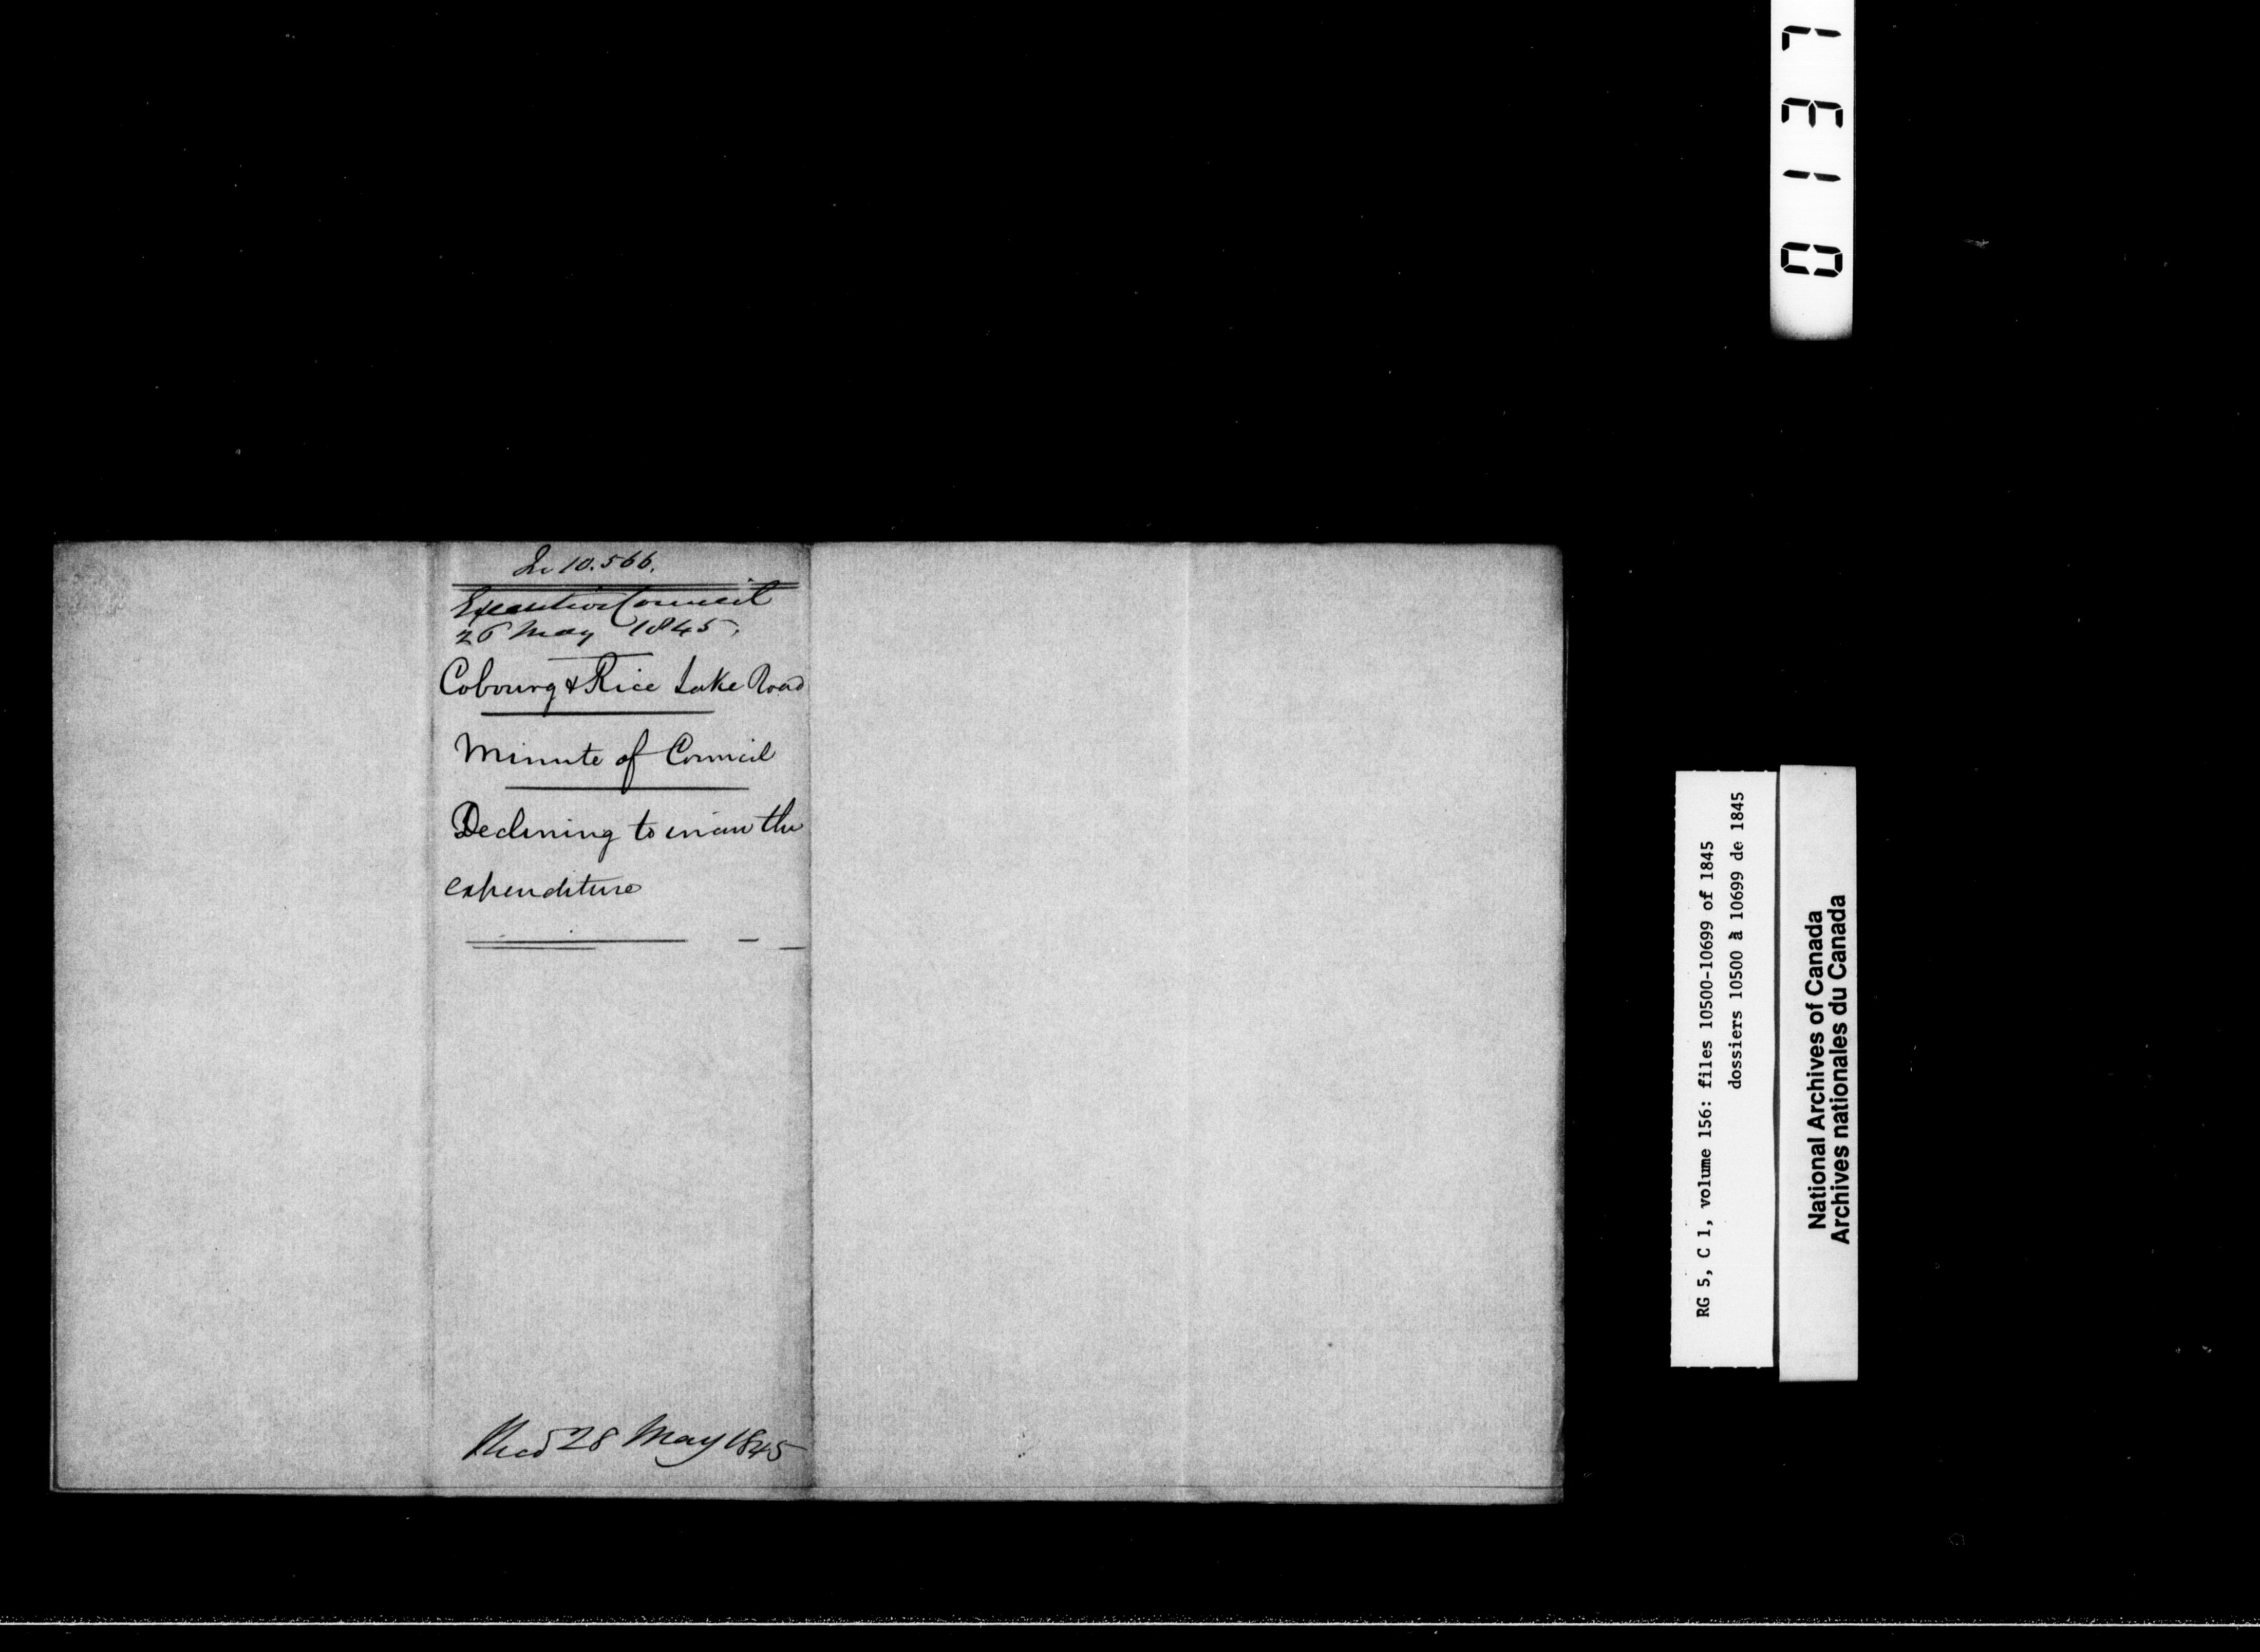 10.566.
Executive Council
26 May 1845.
Cobourg & Rice Lake Road
Minute of Council
Declining to incur the
expenditure
Recd 28 May 1845
0137
RG 5, C 1, volume 156: files 10500-10699 of 1845
dossiers 10500 à 10699 de 1845
National Archives of Canada
Archives nationales du Canada